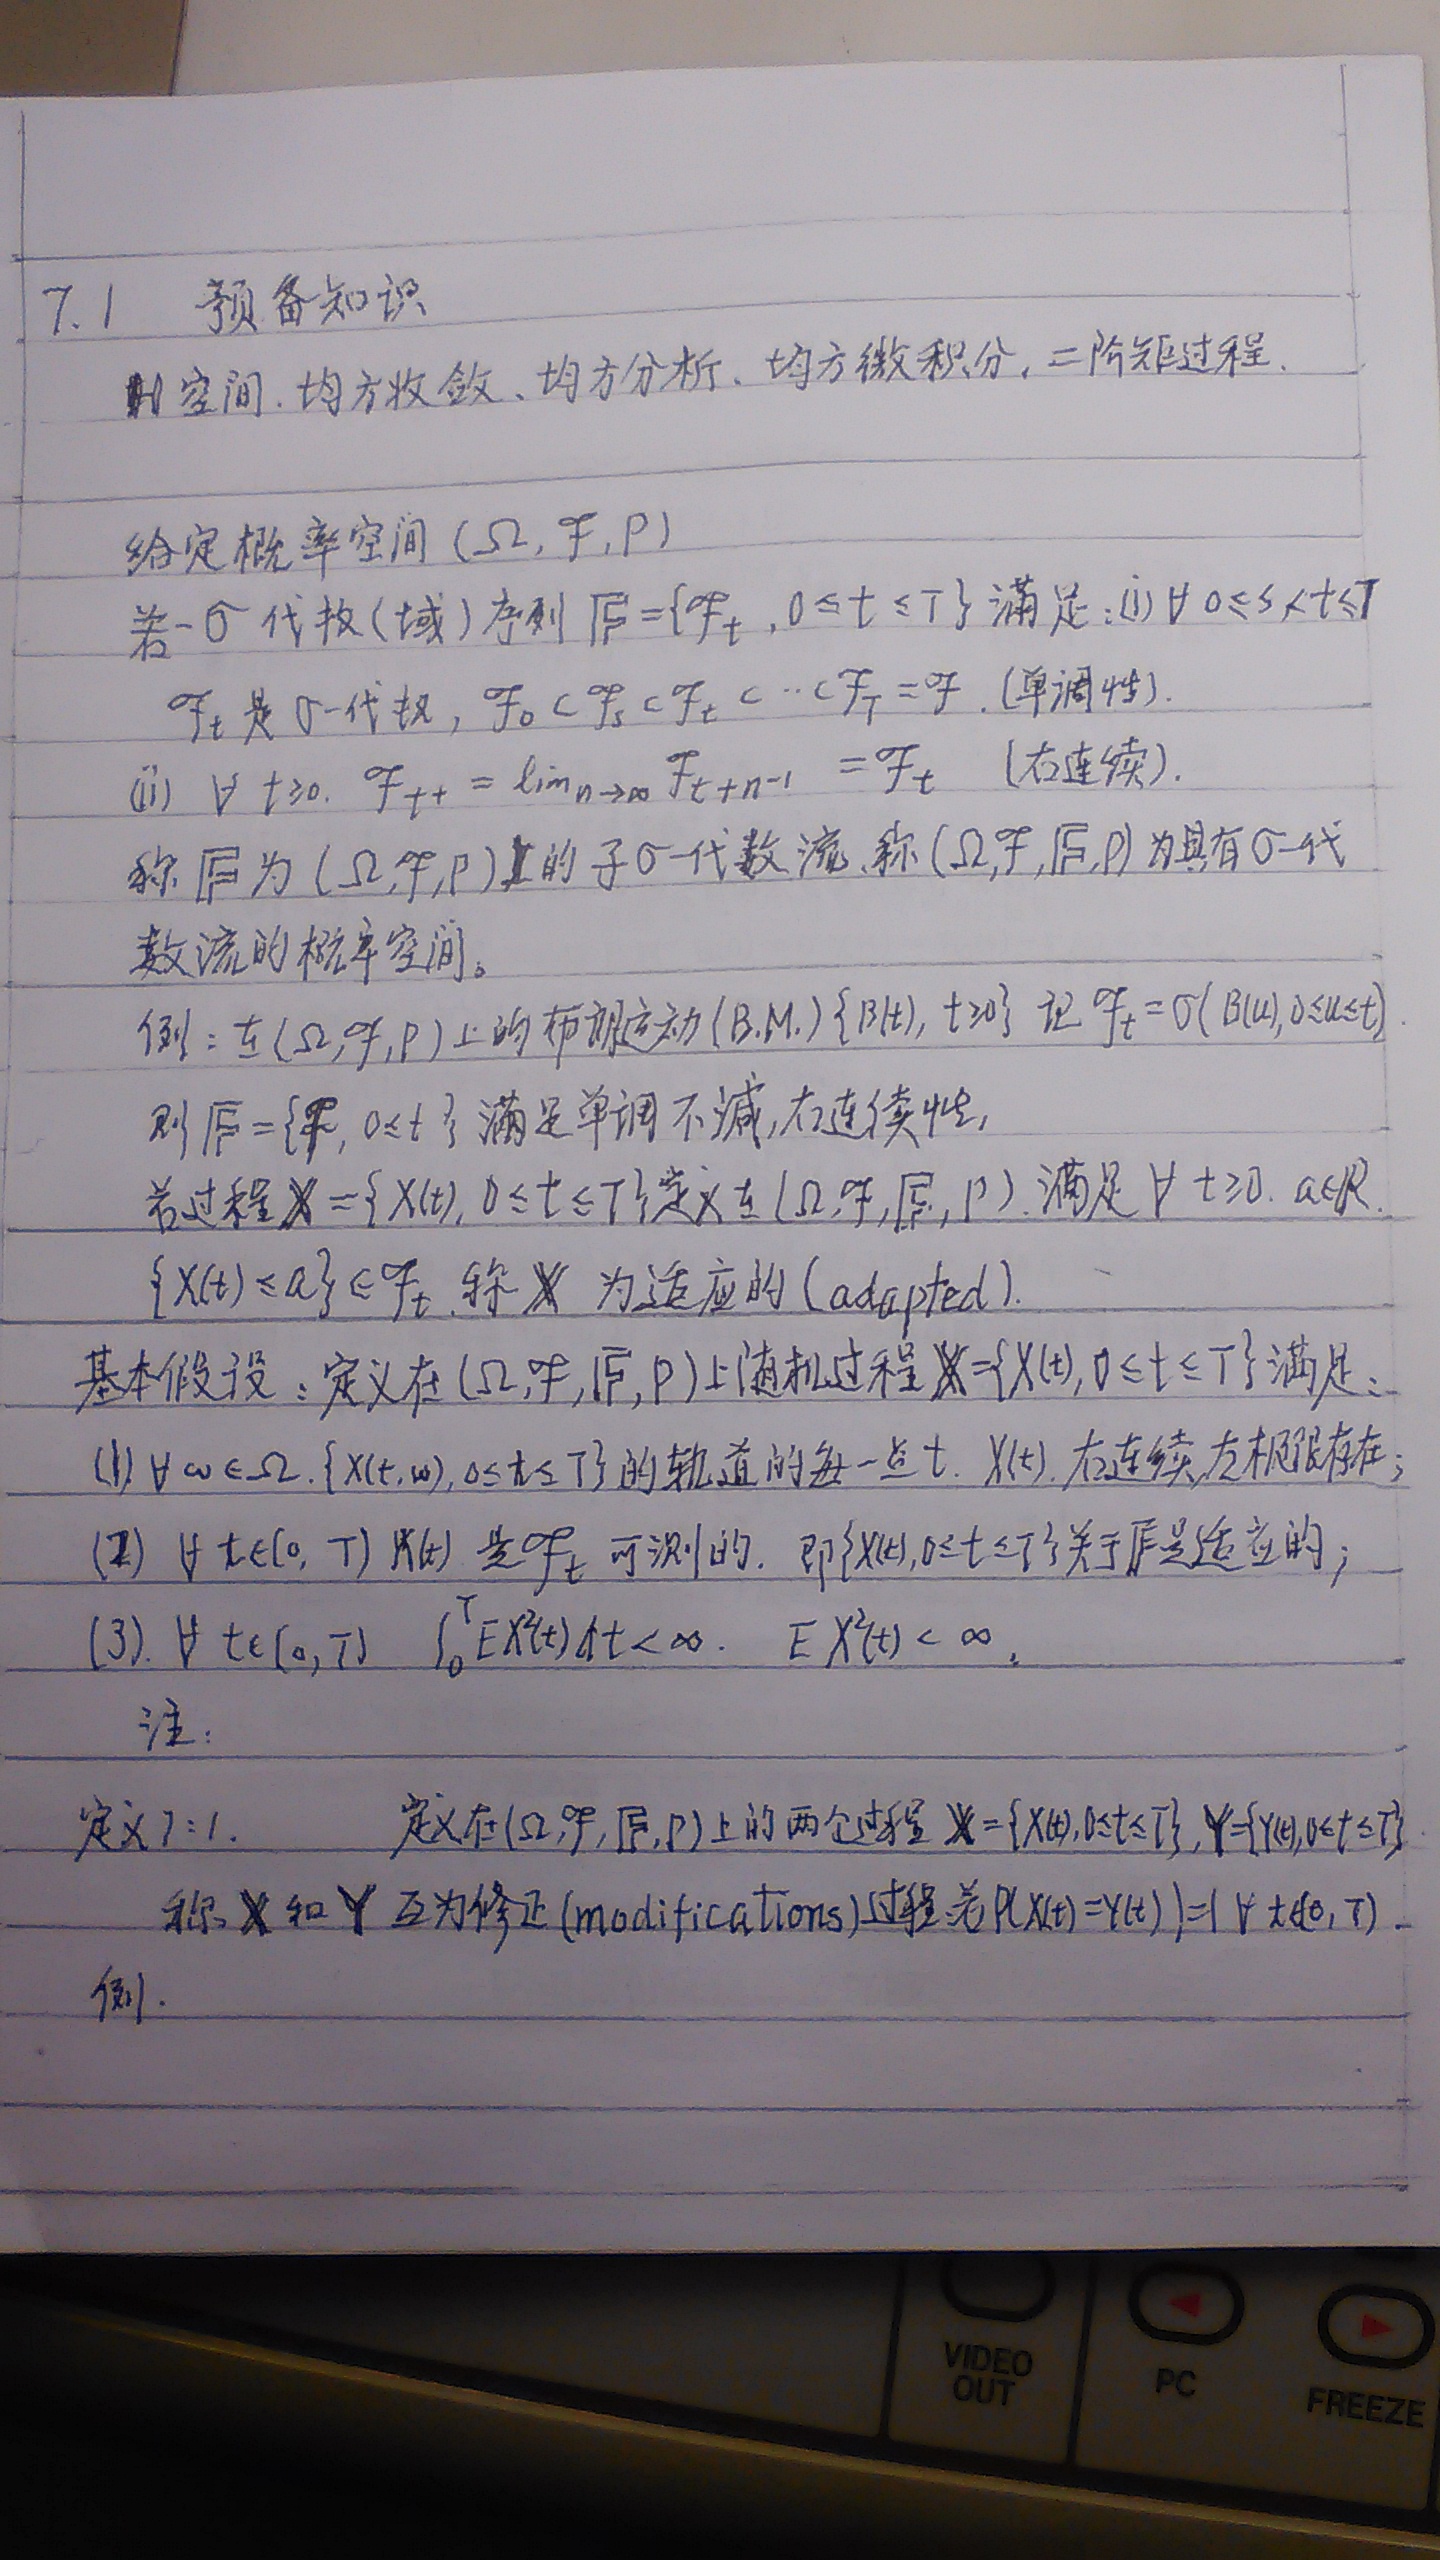 7.1 预备知识
H空间、均方收敛、均方分析、均方微积分、二阶矩过程.
给定概率空间(Ω, ℱ, P)
若一σ代数(域)序列 𝔽={ℱ_t, 0≤t≤T} 满足:(i) ∀ 0≤s<t≤T
ℱ_t 是 σ-代数, ℱ_0⊂ℱ_s⊂ℱ_t⊂⋯⊂ℱ_T=ℱ. (单调性).
(ii) ∀ t≥0. ℱ_{t+} = lim_{n→∞} ℱ_{t+n^{-1}} = ℱ_t (右连续).
称 𝔽 为 (Ω,ℱ,P)上的子σ-代数流,称(Ω,ℱ,𝔽,P)为具有σ-代
数流的概率空间。
例: 在(Ω,ℱ,P)上的布朗运动(B.M.){B(t), t≥0} 记 ℱ_t=σ(B(u),0≤u≤t).
则 𝔽={ℱ, 0≤t} 满足单调不减,右连续性,
若过程 𝕏={X(t), 0≤t≤T}定义在(Ω,ℱ,𝔽,P). 满足 ∀ t≥0. a∈R.
{X(t)≤a}∈ℱ_t. 称 𝕏 为适应的(adapted).
基本假设: 定义在(Ω,ℱ,𝔽,P)上随机过程 𝕏={X(t), 0≤t≤T}满足:
(1) ∀ω∈Ω. {X(t,ω), 0≤t≤T}的轨道的每一点t. X(t). 右连续,左极限存在;
(2) ∀ t∈[0, T) X(t) 是 ℱ_t 可测的. 即{X(t),0≤t≤T}关于𝔽是适应的;
(3). ∀ t∈[0,T) ∫_0^T EX²(t)dt<∞. EX²(t)<∞.
注:
定义7:1. 定义在(Ω,ℱ,𝔽,P)上的两个过程 𝕏={X(t),0≤t≤T}, 𝕐={Y(t),0≤t≤T}
称 𝕏 和 𝕐 互为修正(modifications)过程若P(X(t)=Y(t))=1 ∀ t∈[0, T).
例.
VIDEO OUT
PC
FREEZE